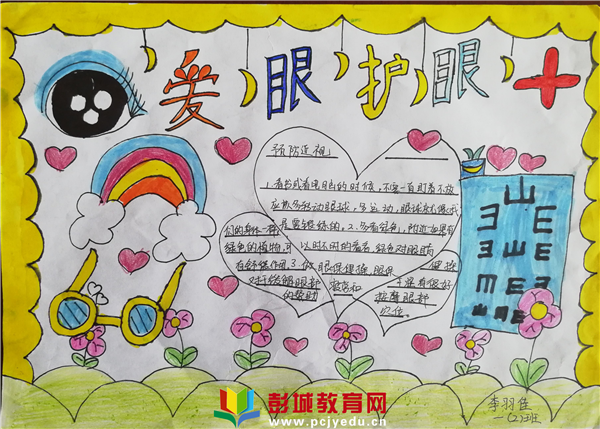 爱眼护眼
预防近视
1.看书或看电脑的时候,不要一直盯着不放
应该多动动眼球,多运动,眼球就像我
们的身体一样是要锻炼的,2.多看绿色,附近如果有
绿色的植物,可以时不时的看看,绿色对眼睛
有舒缓作用 3.做眼保健操,眼保健操
对于缓解眼部疲劳和
的紧张 按摩眼部
穴位。
李羽佳
一(2)班
彭城教育网
www.pcjyedu.cn